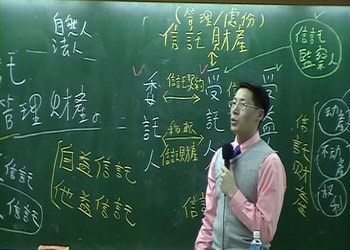 自然人
法人
託
管理財產の
信託
信託
自益信託
他益信託
(管理/處份)
信託財產
委託人
信託契約
移轉
信託財產
受託人
受益
信託
監察人
信託財產
動產
不動產
權利
信託